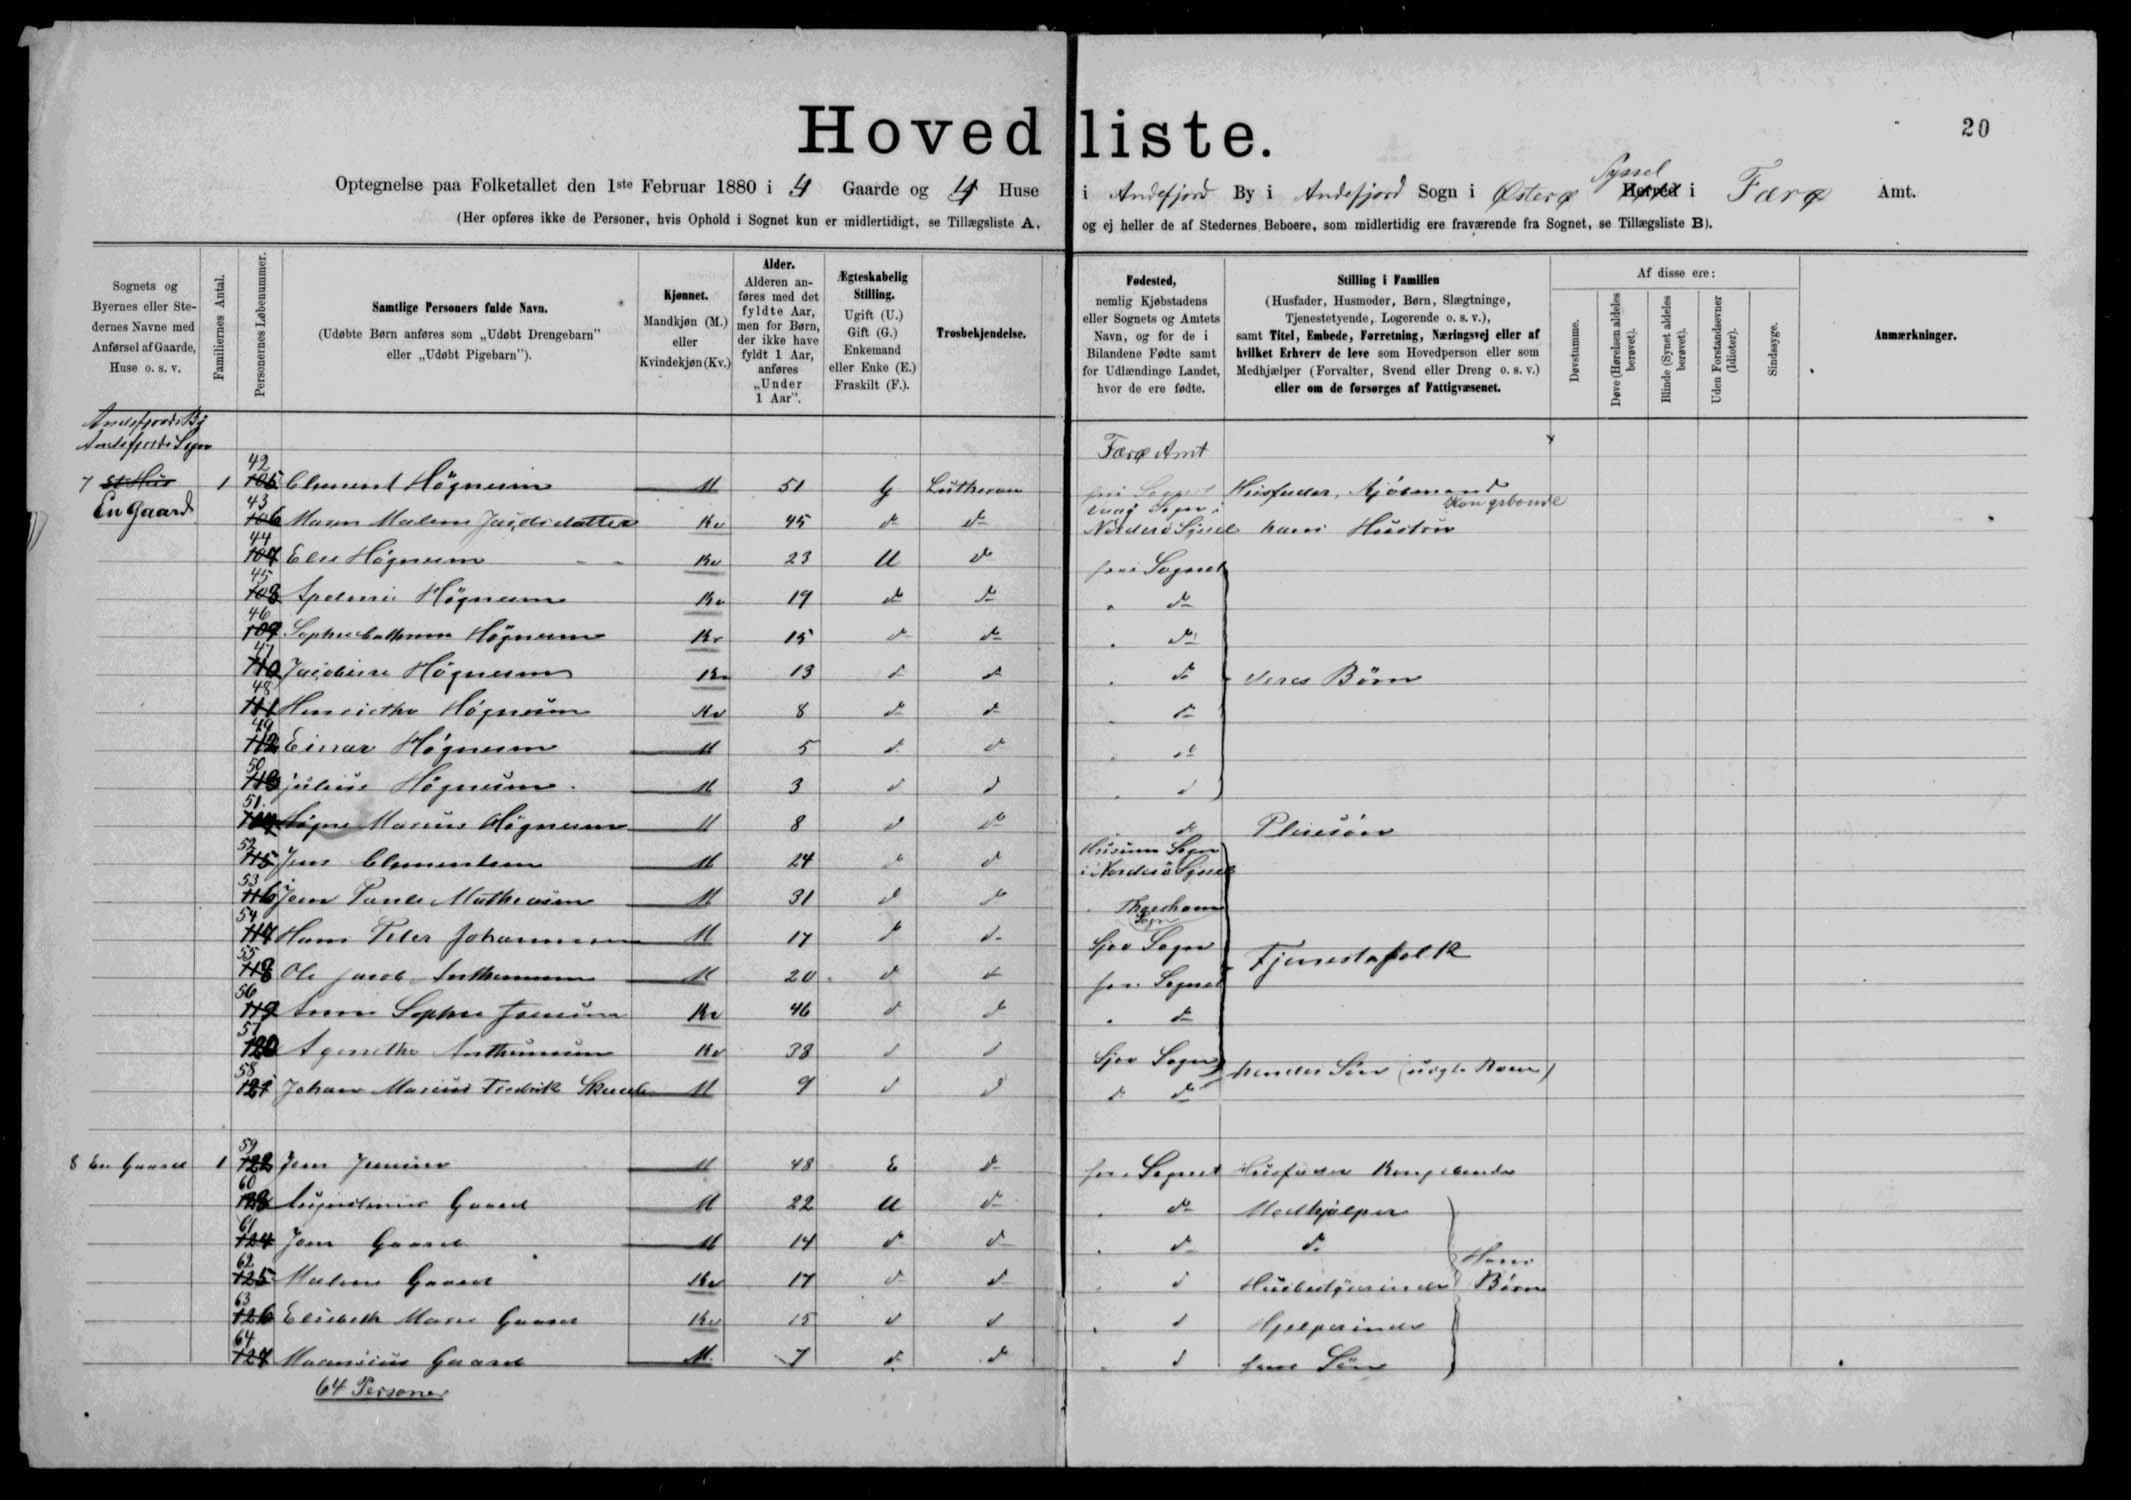 Hovedliste.
20
Optegnelse paa Folketallet den 1ste Februar 1880 i 4 Gaarde og 4 Huse i Andefjord By i Andefjord Sogn i Østerø Herred Syssel i Færø Amt.
(Her opføres ikke de Personer, hvis Ophold i Sognet kun er midlertidigt, se Tillægsliste A, og ej heller de af Stedernes Beboere, som midlertidig ere fraværende fra Sognet, se Tillægsliste B).
Sognets og Byernes eller Stedernes Navne med Anførsel af Gaarde, Huse o. s. v.
Familiernes Antal.
Personernes Løbenummer.
Samtlige Personers fulde Navn.
(Udøbte Børn anføres som „Udøbt Drengebarn" eller „Udøbt Pigebarn").
Kjønnet.
Mandkjøn (M.) eller Kvindekjøn (Kv.)
Alder.
Alderen anføres med det fyldte Aar, men for Børn, der ikke have fyldt 1 Aar, anføres „Under 1 Aar".
Ægteskabelig Stilling.
Ugift (U.) Gift (G.) Enkemand eller Enke (E.) Fraskilt (F.).
Trosbekjendelse.
Fødested,
nemlig Kjøbstadens eller Sognets og Amtets Navn, og for de i Bilandene Fødte samt for Udlændinge Landet, hvor de ere fødte.
Stilling i Familien
(Husfader, Husmoder, Børn, Slægtninge, Tjenestetyende, Logerende o. s. v.), samt Titel, Embede, Forretning, Næringsvej eller af hvilket Erhverv de leve som Hovedperson eller som Medhjælper (Forvalter, Svend eller Dreng o. s. v.) eller om de forsørges af Fattigvæsenet.
Af disse ere:
Døvstumme.
Døve (Hørelsen aldeles berøvet).
Blinde (Synet aldeles berøvet).
Uden Forstandsevner (Idioter).
Sindssyge.
Anmærkninger.
Andefjords By
Andefjords Sogn
Færø Amt
7 et Hus 1 42 105 Clement Høgnesen M 51 G Lutheran her i Sognet Husfader, Kjøbmand
En Gaard 43 106 Maren Malene Jacobsdatter Kv 45 do do Vaag Sogn i Norderø Syssel hans Hustru Kongsbonde
44 107 Else Høgnesen Kv 23 U do her i Sognet
45 108 Høgnesen Kv 19 do do " do
46 109 Sophie Cathrine Høgnesen Kv 15 do do " do
47 110 Jacobine Høgnesen Kv 13 do do " do deres Børn
48 111 Henriethe Høgnesen Kv 8 do do " do
49 112 Einar Høgnesen M 5 do do " do
50 113 Julius Høgnesen M 3 do do " do
51 114 Høgne Marius Høgnesen M 8 do do " do Pleiesøn
52 115 Jens Clementsen M 24 do do Husum Sogn i Norderø Syssel
53 116 Joen Poule Mathiasen M 31 do do Thorshavn Sogn
54 117 Hans Peter Johannesen M 17 do do Sjov Sogn
55 118 Ole Jacob Anthonsen M 20 do do her i Sognet Tjenestefolk
56 119 Anne Sophie Joensen Kv 46 do do " do
57 120 Agnethe Kv 38 do do Sjov Sogn
58 121 Johan Marius Fredrik M 9 do do do do hendes Søn (uægte Barn)
8 En Gaard 1 59 122 Jens Jensen M 48 E do her i Sognet Husfader Kongsbonde
60 123 Gaard M 22 U do " do Medhjælper
61 124 Joen Gaard M 14 do do " do do
62 125 Malene Gaard Kv 17 do do " do Husbestyrerinde Hans Børn
63 126 Elisabeth Marie Gaard Kv 15 do do " do Hjelperinde
64 127 Mauritius Gaard M 7 do do " do hans Søn
64 Personer